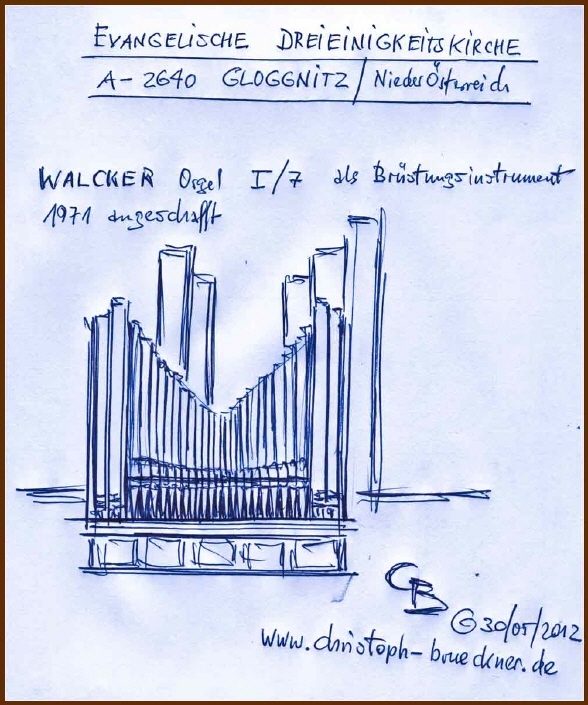 EVANGELISCHE DREIEINIGKEITSKIRCHE
A-2640 GLOGGNITZ / NiederÖsterreich
WALCKER Orgel I/7 als Brüstungsinstrument
1971 angeschafft
CB
© 30/05/2012
www.christoph-brueckner.de